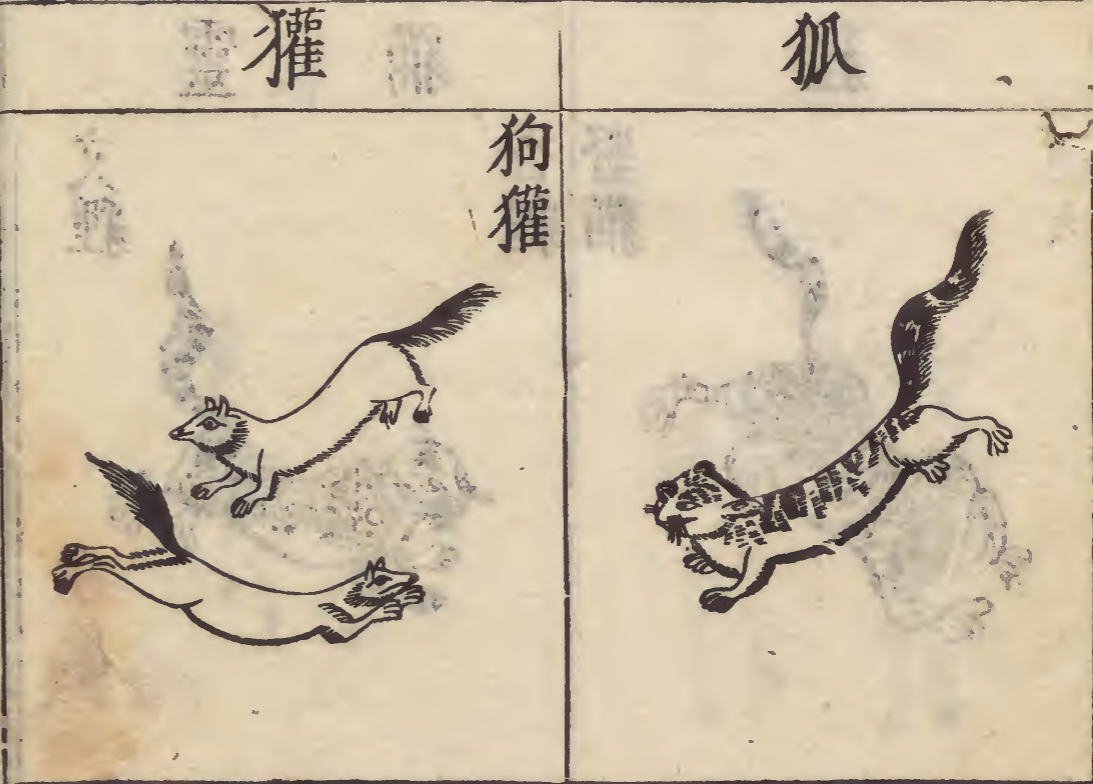 狐
獾
狗獾